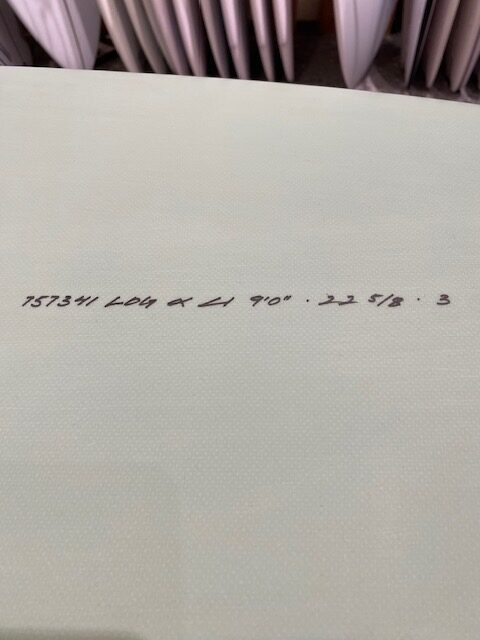 757341 LOG x CI 9'0" · 22 5/8 · 3